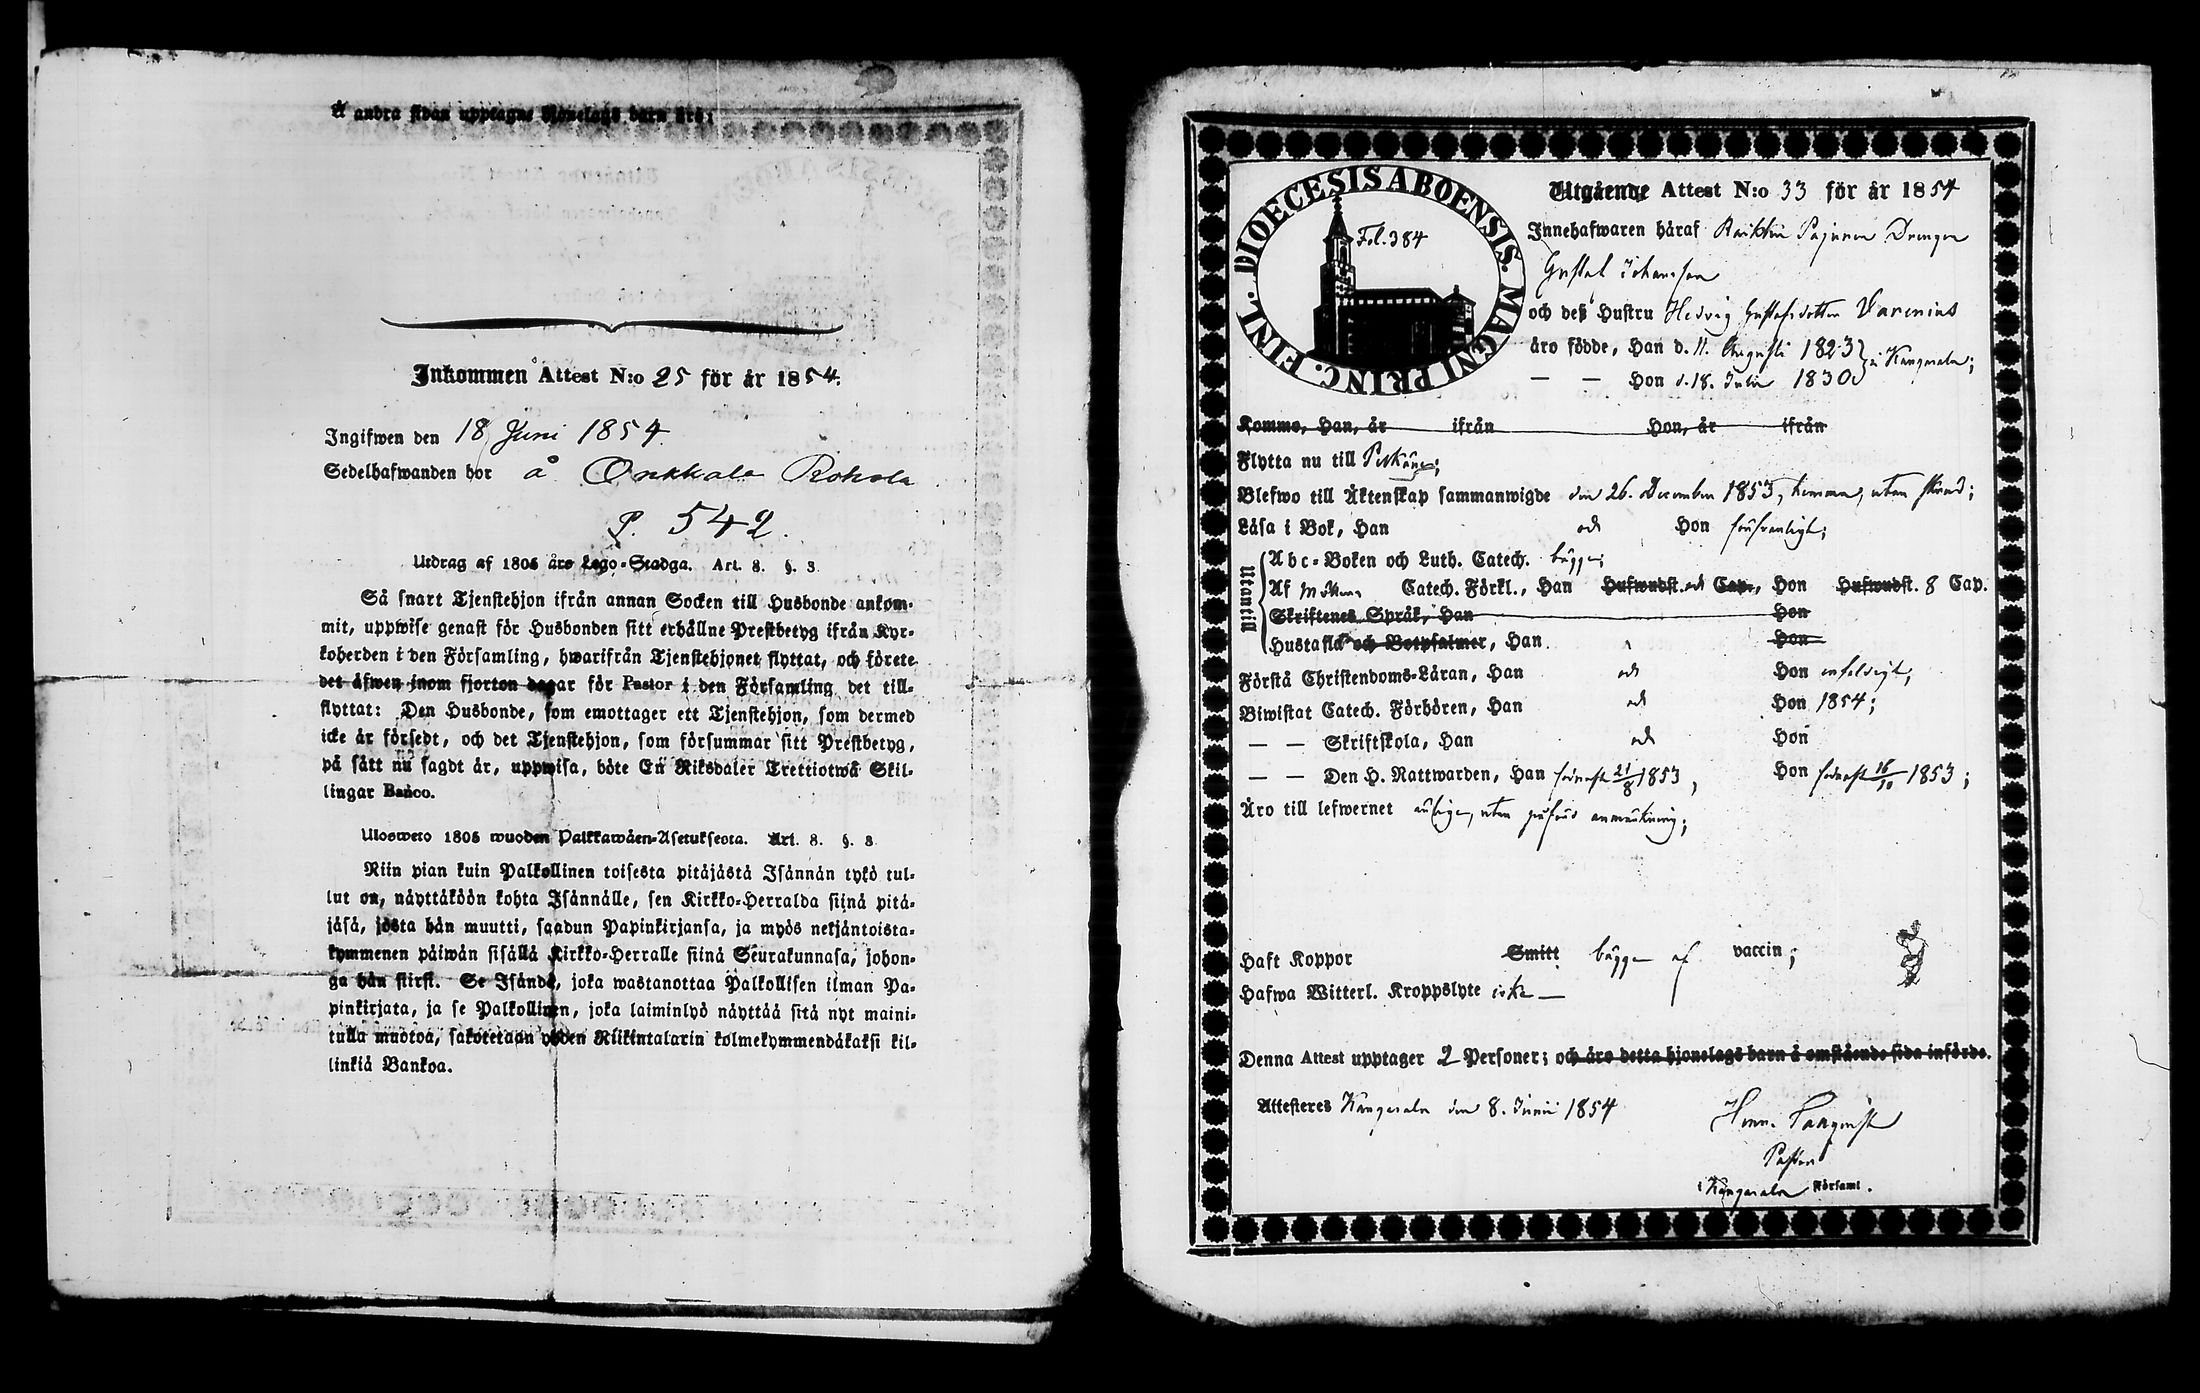 Å andra sidan upptagne Hjonelags barn äro:
Inkommen Attest N:o 25 för år 1854.
Ingifwen den 18 Juni 1854.
Sedelhafwanden bor å Onkkala Rokola
P. 542.
Utdrag af 1805 års Lego-Stadga. Art. 8. §. 3.
Så snart Tjenstehjon ifrån annan Socken till Husbonde ankom-
mit, uppwise genast för Husbonden sitt erhållne Prestbetyg ifrån Kyr-
koherden i den Församling, hwarifrån Tjenstehjonet flyttat, och förete
det äfwen inom fjorton dagar för Pastor i den Församling det till-
flyttat: Den Husbonde, som emottager ett Tjenstehjon, som dermed
icke är försedt, och det Tjenstehjon, som försummar sitt Prestbetyg,
på sätt nu sagdt är, uppwisa, böte En Riksdaler Trettiotwå Skil-
lingar Banco.
Ulosweto 1805 wuoden Palkkawäen-Asetuksesta. Art. 8. §. 3
Niin pian kuin Palkollinen toisesta pitäjästä Isännän tykö tul-
lut on, näyttäköön kohta Isännälle, sen Kirkko-Herralda siinä pitä-
jäsä, josta hän muutti, saadun Papinkirjansa, ja myös neljäntoista-
kymmenen päiwän sisällä Kirkko-Herralle siinä Seurakunnasa, johon-
ga hän siirst. Se Isändä, joka wastanottaa Palkollisen ilman Pa-
pinkirjata, ja se Palkollinen, joka laiminlyö näyttää sitä nyt maini-
tulla muotoa, sakotetaan yhden Riikintalarin kolmekymmendäkaksi kil-
linkiä Bankoa.
DIOECESIS ABOENSIS. MAGNI PRINC. FINL.
Fol. 384
Utgående Attest N:o 33 för år 1854
Innehafwaren häraf Raikku Pajunen Drengen
Gustaf Johansson
och deß Hustru Hedvig Gustafsdotter Varenius
äro födde, Han d. 11. Augusti 1823 } i Kangasala;
— — Hon d. 18. Julii 1830
Kommo, Han, år ifrån Hon, år ifrån
Flytta nu till Pelkäne;
Blefwo till Äktenskap sammanwigde den 26. December 1853, hemma, utan skrud;
Läsa i Bok, Han och Hon försvarligt;
Utantill
Abc-Boken och Luth. Catech. bägge;
Af Möllers Catech. Förkl., Han Hufwudst. och Cap., Hon Hufwudst. 8 Cap.
Skriftenes Språk, Han Hon
Hustafla och Botpsalmer, Han Hon
Förstå Christendoms-Läran, Han och Hon enfaldigt;
Biwistat Catech. Förhören, Han och Hon 1854;
— — Skriftskola, Han och Hon
— — Den H. Nattwarden, Han sednast 21/8 1853, Hon sednast 16/10 1853;
Äro till lefwernet ärlige, utan prestens anmärkning;
Haft Koppor Smitt bägge af vaccin;
Hafwa Witterl. Kroppslyte icke —
Denna Attest upptager 2 Personer; och äro detta hjonelags barn å omstående sida införde.
Attesteres Kangasala den 8. Junii 1854
Henr.
Pastor
i Kangasala Församl.